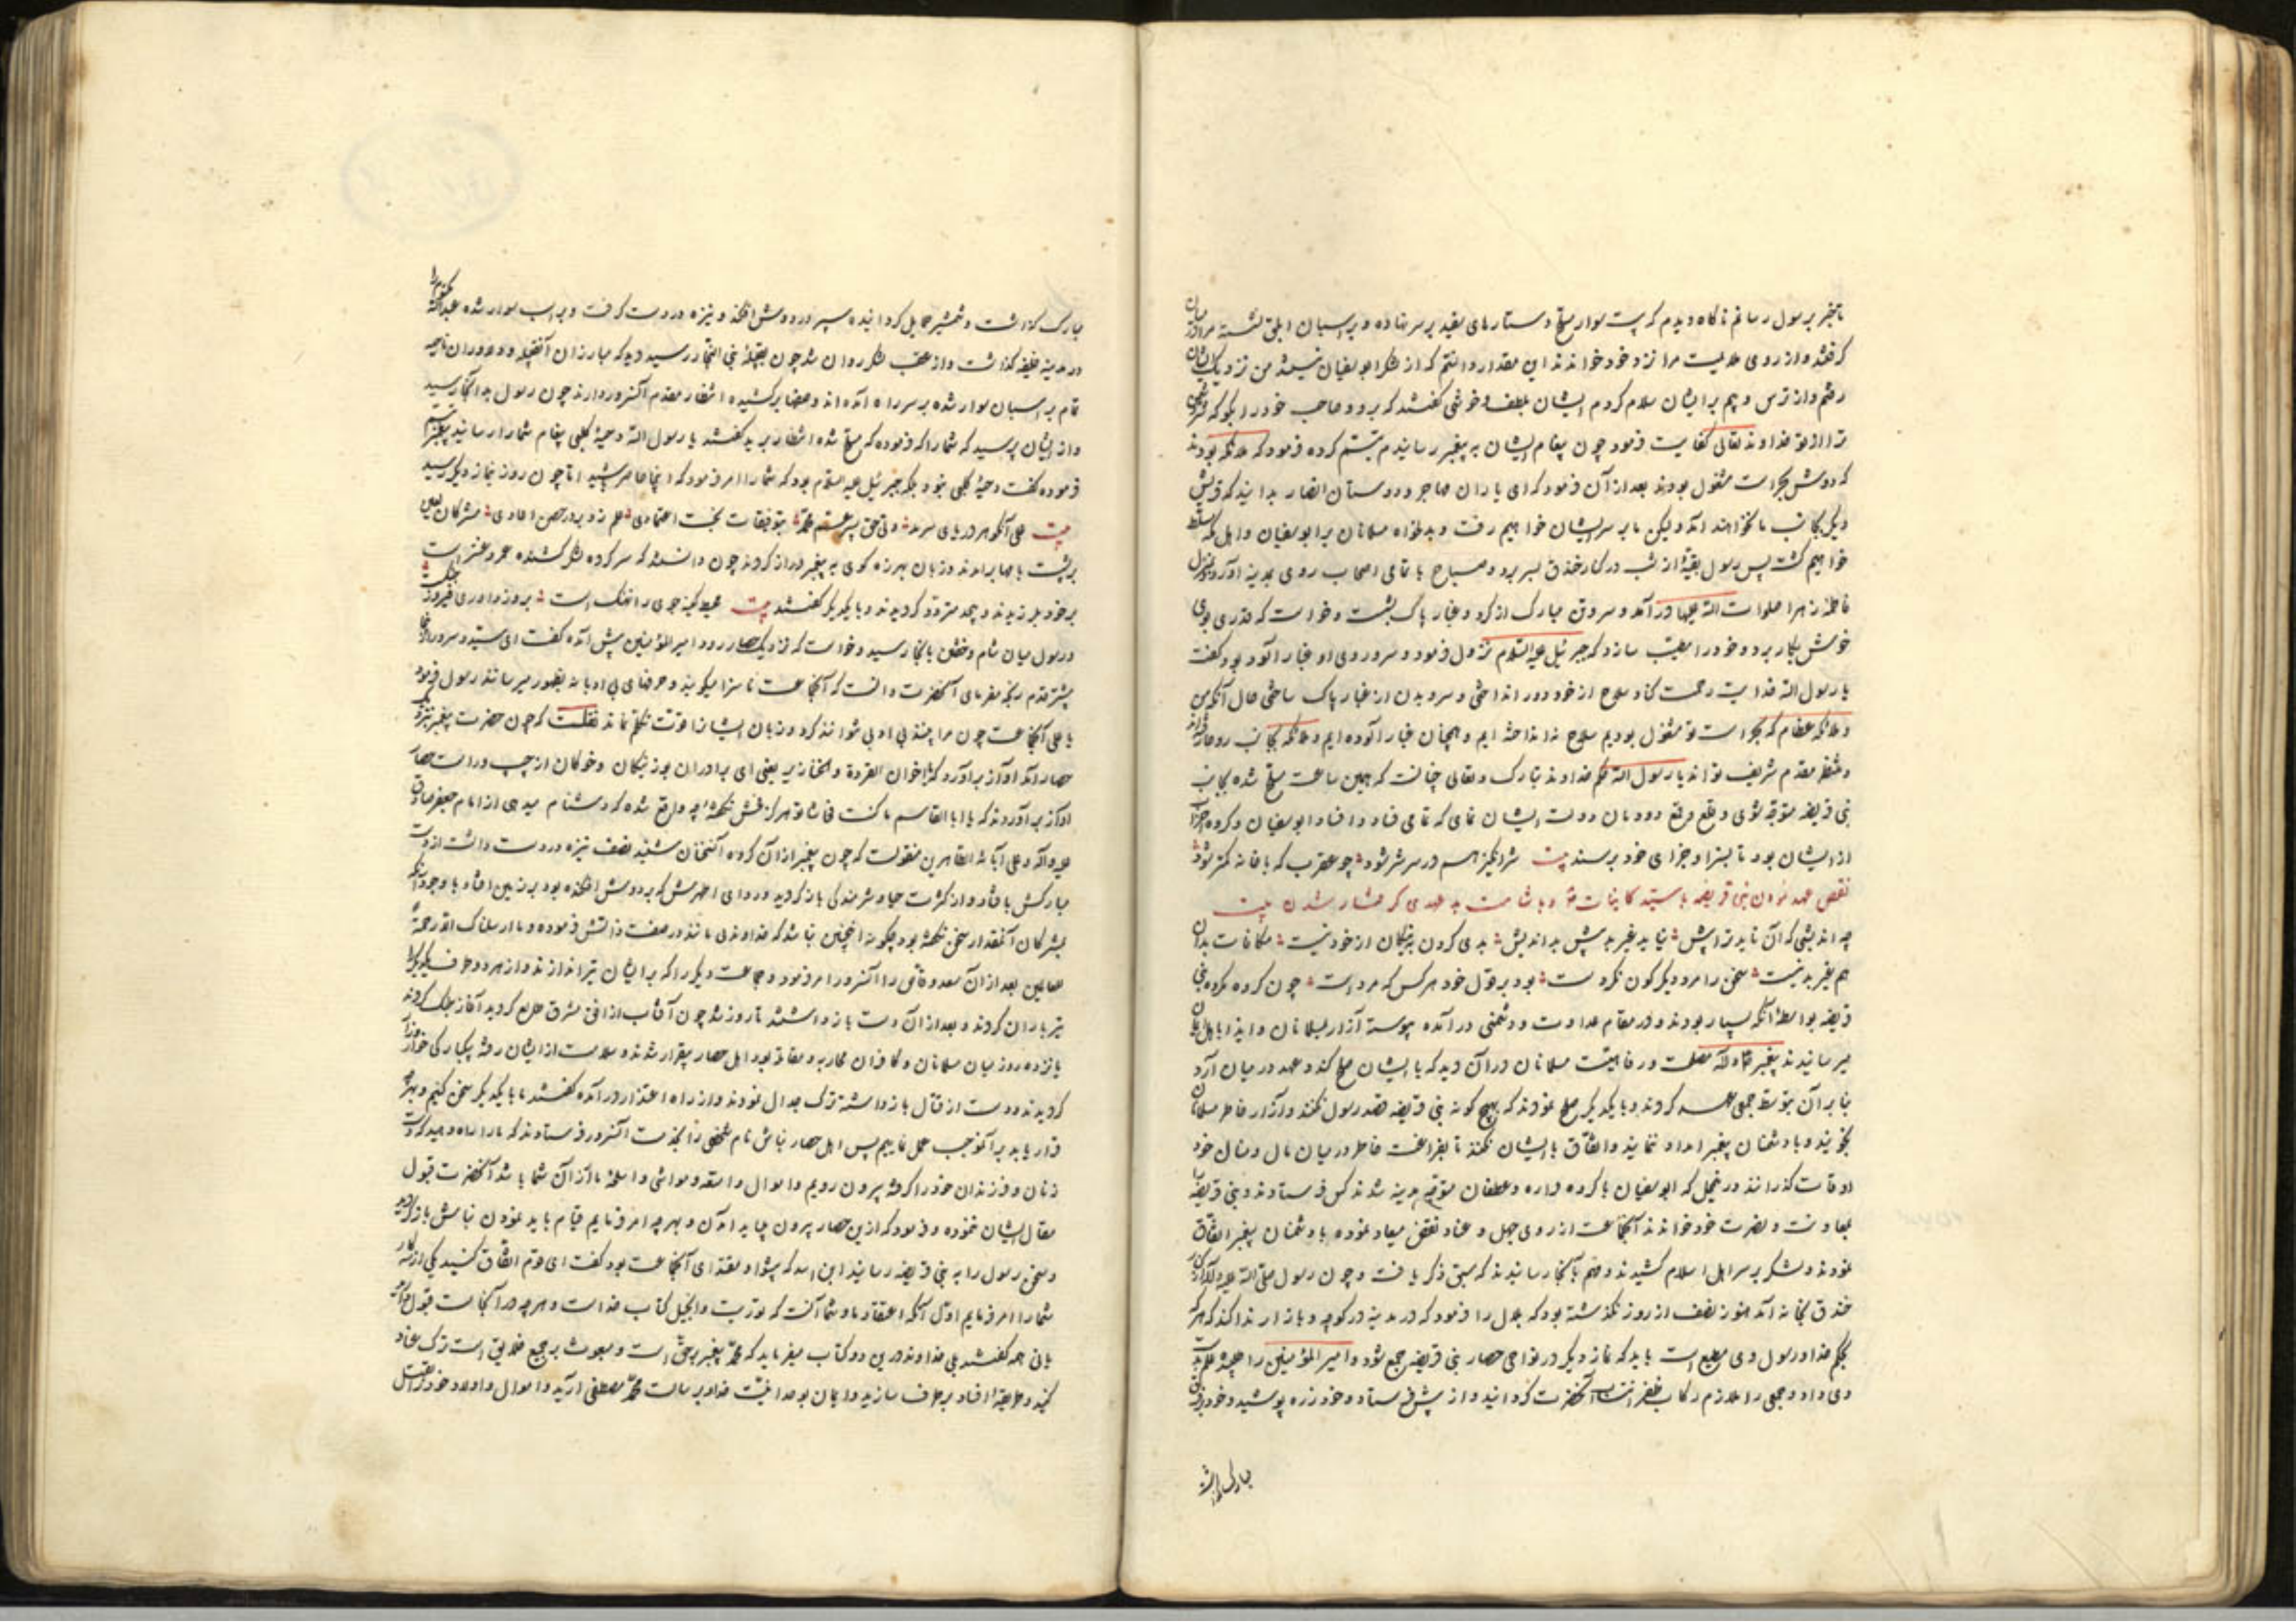 تا خبر برسول رسانم ناگاه دیدم که بیست سوار مسلح دستارهای سفید بر سر نهاده و بر اسبان ابلق نشسته میان
گرفتند و از روی ملایمت مرا نزد خود خواندند این مقدار دانستم که از لشکر ابوسفیان نیستند من نزدیک ایشان
رفتم و از ترس و بیم بر ایشان سلام کردم ایشان بلطف و خوشی گفتند که برو و صاحب خود را بگو که
ترا از تو خداوند تعالی کفایت فرمود چون پیغام ایشان به پیغمبر رسانیدم تبسم کرده فرمود که ملائکه بودند
که دوش بحراست مشغول بودند بعد از آن فرمود که ای یاران مهاجر و دوستان انصار بدانید که قریش
دیگر بجانب ما نخواهند آمد ولیکن ما بر سر ایشان خواهیم رفت و بدلخواه مسلمانان بر ابوسفیان و اهل مکه مسلط
خواهیم گشت پس رسول بقیهٔ از شب در کنار خندق بسر برد و صباح با تمامی اصحاب روی بمدینه آورد و بمنزل
فاطمه زهرا صلوات الله علیها درآمد و سر و تن مبارک از گرد و غبار پاک بشست و خواست که قدری بوی
خوش بکار برد و خود را مطیب سازد که جبرئیل علیه السلام نزول فرمود و سر و روی او غبارآلود بود گفت
یا رسول الله خدایت رحمت کناد سلاح از خود دور انداختی و سر و بدن از غبار پاک ساختی حال آنکه من
و ملائکه عظام که بحراست تو مشغول بودیم سلاح نینداخته ایم و همچنان غبارآلوده ایم و ملائکه بجانب
و منتظر مقدم شریف تواند یا رسول الله حکم خداوند تبارک و تعالی چنانست که همین ساعت مسلح شده بجانب
بنی قریضه متوجه شوی و قلع و قمع دودمان دولت ایشان نمای که تمامی فساد و افساد ابوسفیان و گروه احزاب
از ایشان بود تا بسزا و جزای خود برسند بیت شرانگیز هم در سر شر شود چو عقرب که با خانه کمتر شود
نقض عهد نمودن بنی قریضه با سید کاینات و بشامت بدعهدی گرفتار شدن بیت
چه اندیشی که آن ناید ترا پیش نیاید غیر بد پیش بداندیش بدی کردن به نیکان از خرد نیست مکافات بدان
هم غیر بد نیست سخن را مرد دیگرگون نکردست بود بر قول خود هر کس که مردست چون گروه مکروه بنی
قریضه بواسطهٔ آنکه بسیار بودند و در مقام عداوت و دشمنی درآمده پیوسته آزار بمسلمانان و ایذا باهل ایمان
میرسانیدند پیغمبر مصلحت و رفاهیت مسلمانان در آن دید که با ایشان صلح کند و عهد در میان آرد
بنابر آن بتوسط جمعی عهد کردند و با یکدیگر صلح نمودند که بهیچ گونه بنی قریضه قصد رسول نکنند و آزار خاطر مسلمانان
نجویند و با دشمنان پیغمبر امداد ننمایند و اتفاق با ایشان نکنند تا بفراغت خاطر در میان مال و منال خود
اوقات گذرانند در محل که ابوسفیان با گروه و غطفان متوجه مدینه شدند کس فرستادند و بنی قریضه
بمعاونت و نصرت خود خواندند آنجماعت از روی جهل و عناد نقض میعاد نموده با دشمنان پیغمبر اتفاق
نمودند و لشکر بر سر اهل اسلام کشیدند و مهم بآنجا رسانیدند که سبق ذکر یافت و چون رسول صلی الله علیه و آله از
خندق بخانه آمد هنوز نصف از روز نگذشته بود که بلال را فرمود که در مدینه در کوچه و بازار ندا کند که هر که
بحکم خدا و رسول وی مطیع است باید که نماز دیگر در نواحی حصار بنی قریضه جمع شود و امیر المؤمنین را طلبیده علم
وی داد و جمعی را ملازم رکاب ظفر انتساب آنحضرت گردانید و از پیش فرستاد و خود زره پوشید و خود
مبارک گذاشت
مبارک گذاشت و شمشیر حمایل گردانیده سپر در دوش افکند و نیزه در دست گرفت و بر اسب سوار شده عبدالله
در مدینه خلیفه گذاشت و از عقب لشکر روان شد چون بقبیلهٔ بنی النجار رسید دید که مبارزان آنقبیله و دلاوران
تمام بر اسبان سوار شده بر سر راه آمده اند و صفها برکشیده انتظار مقدم آنسرور دارند چون رسول بدانجا رسید
و از ایشان پرسید که شما را که فرموده که مسلح شده انتظار برید گفتند یا رسول الله دحیهٔ کلبی پیغام شما را رسانید پیغمبر تبسم
فرموده گفت دحیهٔ کلبی نبود بلکه جبرئیل علیه السلام بود که شما را امر فرمود که اینجا حاضر باشید اما چون روز نماز دیگر رسید
بیت علی آنگوهر دریای سرمد ولی حق پسر عم محمد بتوفیقات بخت اعتمادی علم زد بر در حصن اعادی مشرکان لعین
بر پشت بامها برآمدند و زبان بهرزه گوی به پیغمبر دراز کردند چون دانستند که سرکرده لشکر کشنده عمرو عنتر است
بر خود بلرزیدند و بیحد متردد گردیدند و با یکدیگر گفتند بیت محیط کینه جوی را نهنگ است بروز داوری فیروز جنگ است
و رسول میان شام و خفتن بآنجا رسید و خواست که نزدیک حصار رود امیر المؤمنین پیش آمده گفت ای سید و سرور
پیشتر قدم رنجه مفرمای آنحضرت دانست که آنجماعت ناسزا میگویند و حرفهای بی ادبانه بظهور میرسانند رسول فرمود
یا علی آنجماعت چون مرا بینند بی ادبی نتوانند کرد و زبان ایشانرا قوت تکلم نماند نقلست که چون حضرت پیغمبر بنزدیک
حصار آمد آواز برآورد که یا اخوان القردة و الخنازیر یعنی ای برادران بوزینگان و خوکان از چپ و راست حصار
آواز برآوردند که یا ابا القاسم ما کنت فحاشا تو هرگز فحش نگفتهٔ چه واقع شده که دشنام میدهی از امام جعفر صادق
علیه و آله و علی آبائه الطاهرین منقولست که چون پیغمبر از آن گروه آنسخنان شنید نصف نیزه در دست داشت از دست
مبارکش بافتاد و از کثرت حیا و شرمندگی باز گردید و ردای اطهرش که بر دوش افکنده بود بر زمین افتاد با وجود آنکه
بمشرکان آنمقدار سخن نگفته بود چگونه اینچنین نباشد که خداوند بی مانند در صفت ذاتش فرموده و ما ارسلناک الا رحمة
للعالمین بعد از آن سعد وقاص را آنسرور امر فرمود و جماعت دیگر را که بر ایشان تیر اندازند و از هر دو طرف یکدیگر را
تیرباران کردند و بعد از آن دست بازداشتند تا روز شد چون آفتاب از افق مشرق طلوع گردید آغاز جنگ کردند
پانزده روز میان مسلمانان و کافران محاربه و مقاتله بود اهل حصار بیقرار شدند و سلامت از ایشان رفته یکبارگی خوار
گردیدند و دست از قتال بازداشته ترک جدال نمودند و از راه اعتذار درآمده گفتند ما با یکدیگر سخن کنیم و بهرچه
قرار یابد بر آنموجب عمل نماییم پس اهل حصار نباش نام شخصی را بخدمت آنسرور فرستادند که ما را راه دهید که دست
زنان و فرزندان خود را گرفته بیرون رویم و اموال و امتعه و مواشی و اسلحهٔ ما از آن شما باشد آنحضرت قبول
مقال ایشان ننموده و فرمود که ازین حصار بیرون بباید آمدن و بهرچه امر فرمایم قیام باید نمودن نباش بازگردید
و سخن رسول را به بنی قریضه رسانید ابن اسد که پیشوا و مقتدای آنجماعت بود گفت ای قوم اتفاق کنید یکی از سه کار
شما را امر فرمایم اول آنکه اعتقاد ما و شما آنست که توریت و انجیل کتاب خداست و هرچه در آنجاست قبول
یانی همه گفتند بلی خداوند درین دو کتاب میفرماید که محمد پیغمبر برحق است و مبعوث بر جمیع خلایق است ترک عناد
کنید و طریقهٔ افساد برطرف سازید و ایمان بوحدانیت خدا و برسالت محمد مصطفی آرید و اموال و اولاد خود را